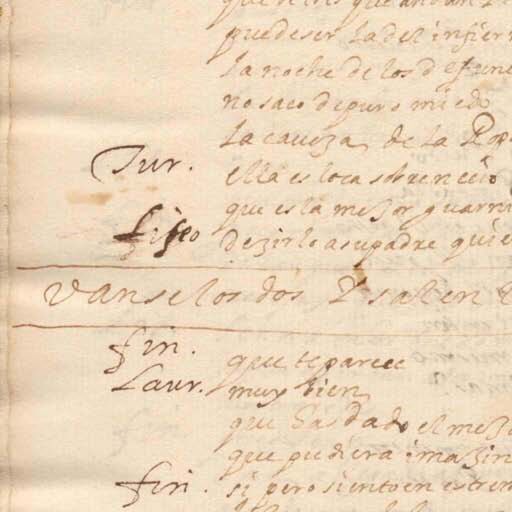 puede ser la del infier
la noche de los defunc
no saco de puro miedo
la caveza de la Rop
Tur. ella es loca sobre necio
que es la mejor guarni
fiseo dezirlo a su padre quie
Vanse los dos Y salen
fin. que te parece
Laur. muy bien
que has dado el mejo
que pudiera imagin
fin. si pero siento en estrem